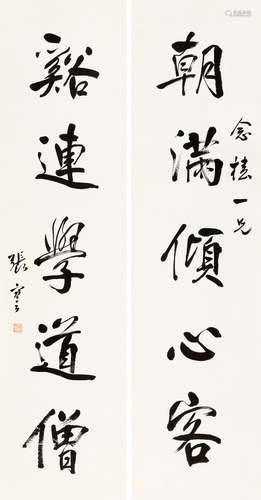 朝滿傾心客
念植一兄
谿連學道僧
張